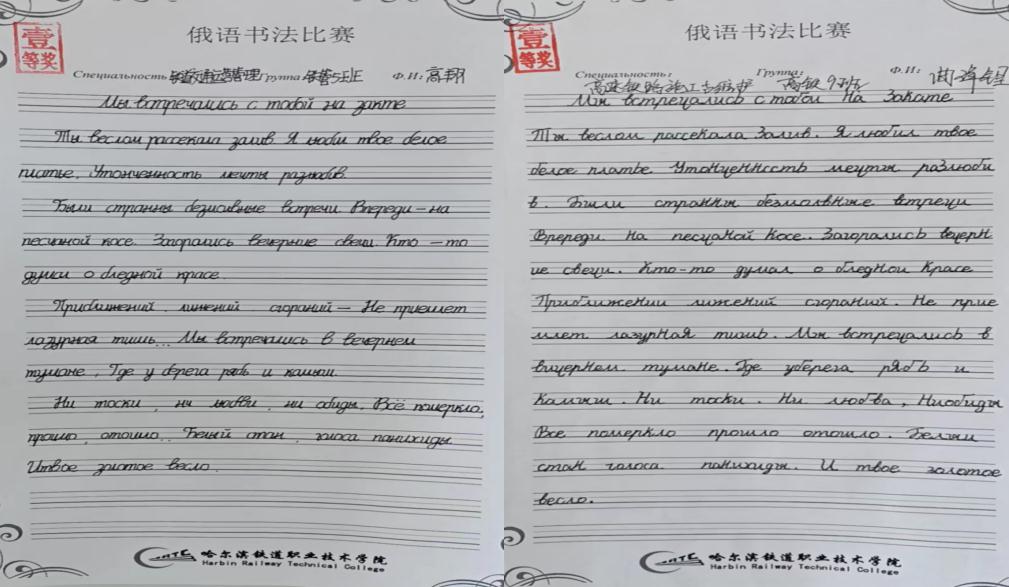 俄语书法比赛
壹
等奖
Специальность Группа Ф.И: 高翔
Мы встречались с тобой на закте
Ты веслом рассекала залив. Я люби твое белое
платье, Утонченность мечты разлюбив.
Были странны безмсивные встречи. Впереди-на
песчаной косе. Загорались вечерние свечи. Кто-то
думал о бледной красе.
Приближений, линений, сгораний - Не приемлет
лазурная тишь... Мы встречались в вечернем
тумане, Где у берега рябь и камыш.
Ни тоски, ни любви, ни обиды, Всё померкло,
прошло, отошло.. Белый стан, голоса панихиды
Итвое златое весло.
哈尔滨铁道职业技术学院
Harbin Railway Technical College
俄语书法比赛
壹
等奖
Специальность: Группа: Ф.И:
高铁9班
Мы встречались с тобои На Закате
Ты веслом рассекала Залив. Я любил твое
белое платье. Утонченность мечты разлюби
в. Были странны безмолвные встречи
Вререди. На песчаной косе.. Загорались вечерн
ие свечи. Кто-то думал о бледнои Красе
Приближении лижений сгораний. Не прие
млет лазурная тишь. Мы встречались в
вичернем тумане. Где уберега рябь и
Камыш. Ни тоски. Ни любва, Ниобиды
Все померкло прошло отошло. Белыи
стан голоса панихиды. И твое золотое
весло.
哈尔滨铁道职业技术学院
Harbin Railway Technical College